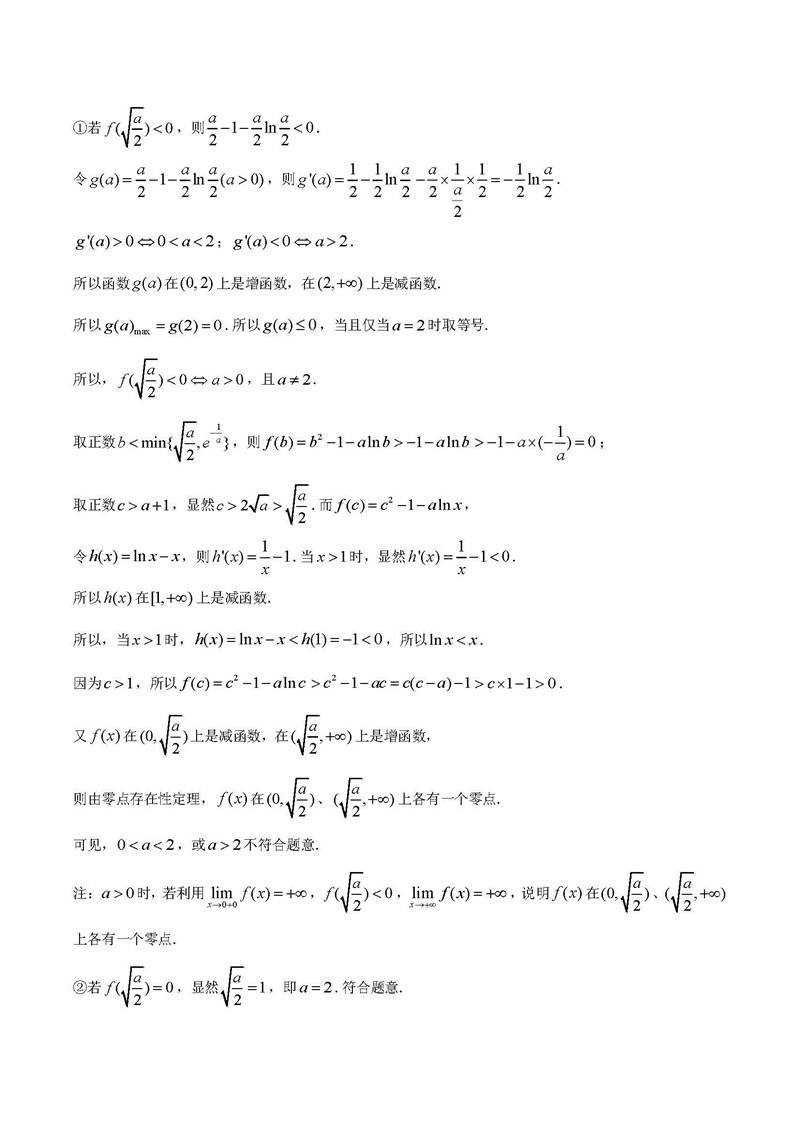 ①若 f(√(a/2))<0，则 a/2−1−a/2 ln a/2<0．
令g(a)=a/2−1−a/2 ln a/2 (a>0)，则g'(a)=1/2−1/2 ln a/2−a/2×1/(a/2)×1/2=−1/2 ln a/2．
g'(a)>0⇔0<a<2；g'(a)<0⇔a>2．
所以函数g(a)在(0,2)上是增函数，在(2,+∞)上是减函数．
所以g(a)max=g(2)=0．所以g(a)≤0，当且仅当a=2时取等号．
所以，f(√(a/2))<0⇔a>0，且a≠2．
取正数b<min{√(a/2),e^(−1/a)}，则f(b)=b²−1−aln b>−1−aln b>−1−a×(−1/a)=0；
取正数c>a+1，显然c>2√a>√(a/2)．而f(c)=c²−1−aln x，
令h(x)=ln x−x，则h'(x)=1/x−1．当x>1时，显然h'(x)=1/x−1<0．
所以h(x)在[1,+∞)上是减函数．
所以，当x>1时，h(x)=ln x−x<h(1)=−1<0，所以ln x<x．
因为c>1，所以f(c)=c²−1−aln c>c²−1−ac=c(c−a)−1>c×1−1>0．
又f(x)在(0,√(a/2))上是减函数，在(√(a/2),+∞)上是增函数，
则由零点存在性定理，f(x)在(0,√(a/2))、(√(a/2),+∞)上各有一个零点．
可见，0<a<2，或a>2不符合题意．
注：a>0时，若利用lim x→0+0 f(x)=+∞，f(√(a/2))<0，lim x→+∞ f(x)=+∞，说明f(x)在(0,√(a/2))、(√(a/2),+∞)
上各有一个零点．
②若f(√(a/2))=0，显然√(a/2)=1，即a=2．符合题意．